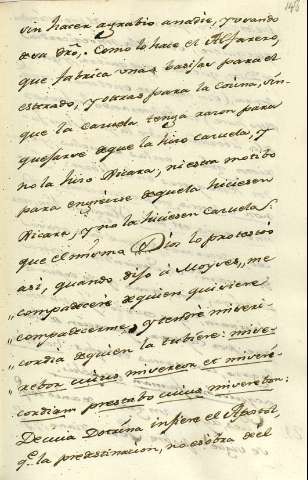 148
sin hacer agrabio anadie, y usando
de su dro,. Como lo hace el Alfarero,
que fabrica unas basijas para el
estrado, y otras para la cocina, sin
que la cazuela tenga razon para
quejarse de que la hizo Cazuela, y
no la hizo Xicara, ni estra motibo
para engreirse de quela hiciesen
Xicara, y no la hiciesen Cazuela.
que el misma Dios lo protestó
asi, quando dijo â Moyses, me
compadeceré de quien quisiere
compadecerme, y tendré miseri-
cordia de quien la tubiere: mise-
rebor cuius misereor et miseri-
cordiam prestabo cuius miserebor:
De cuia Doctrina infiere el Apostol,
qe la predestinacion, no es obra de el